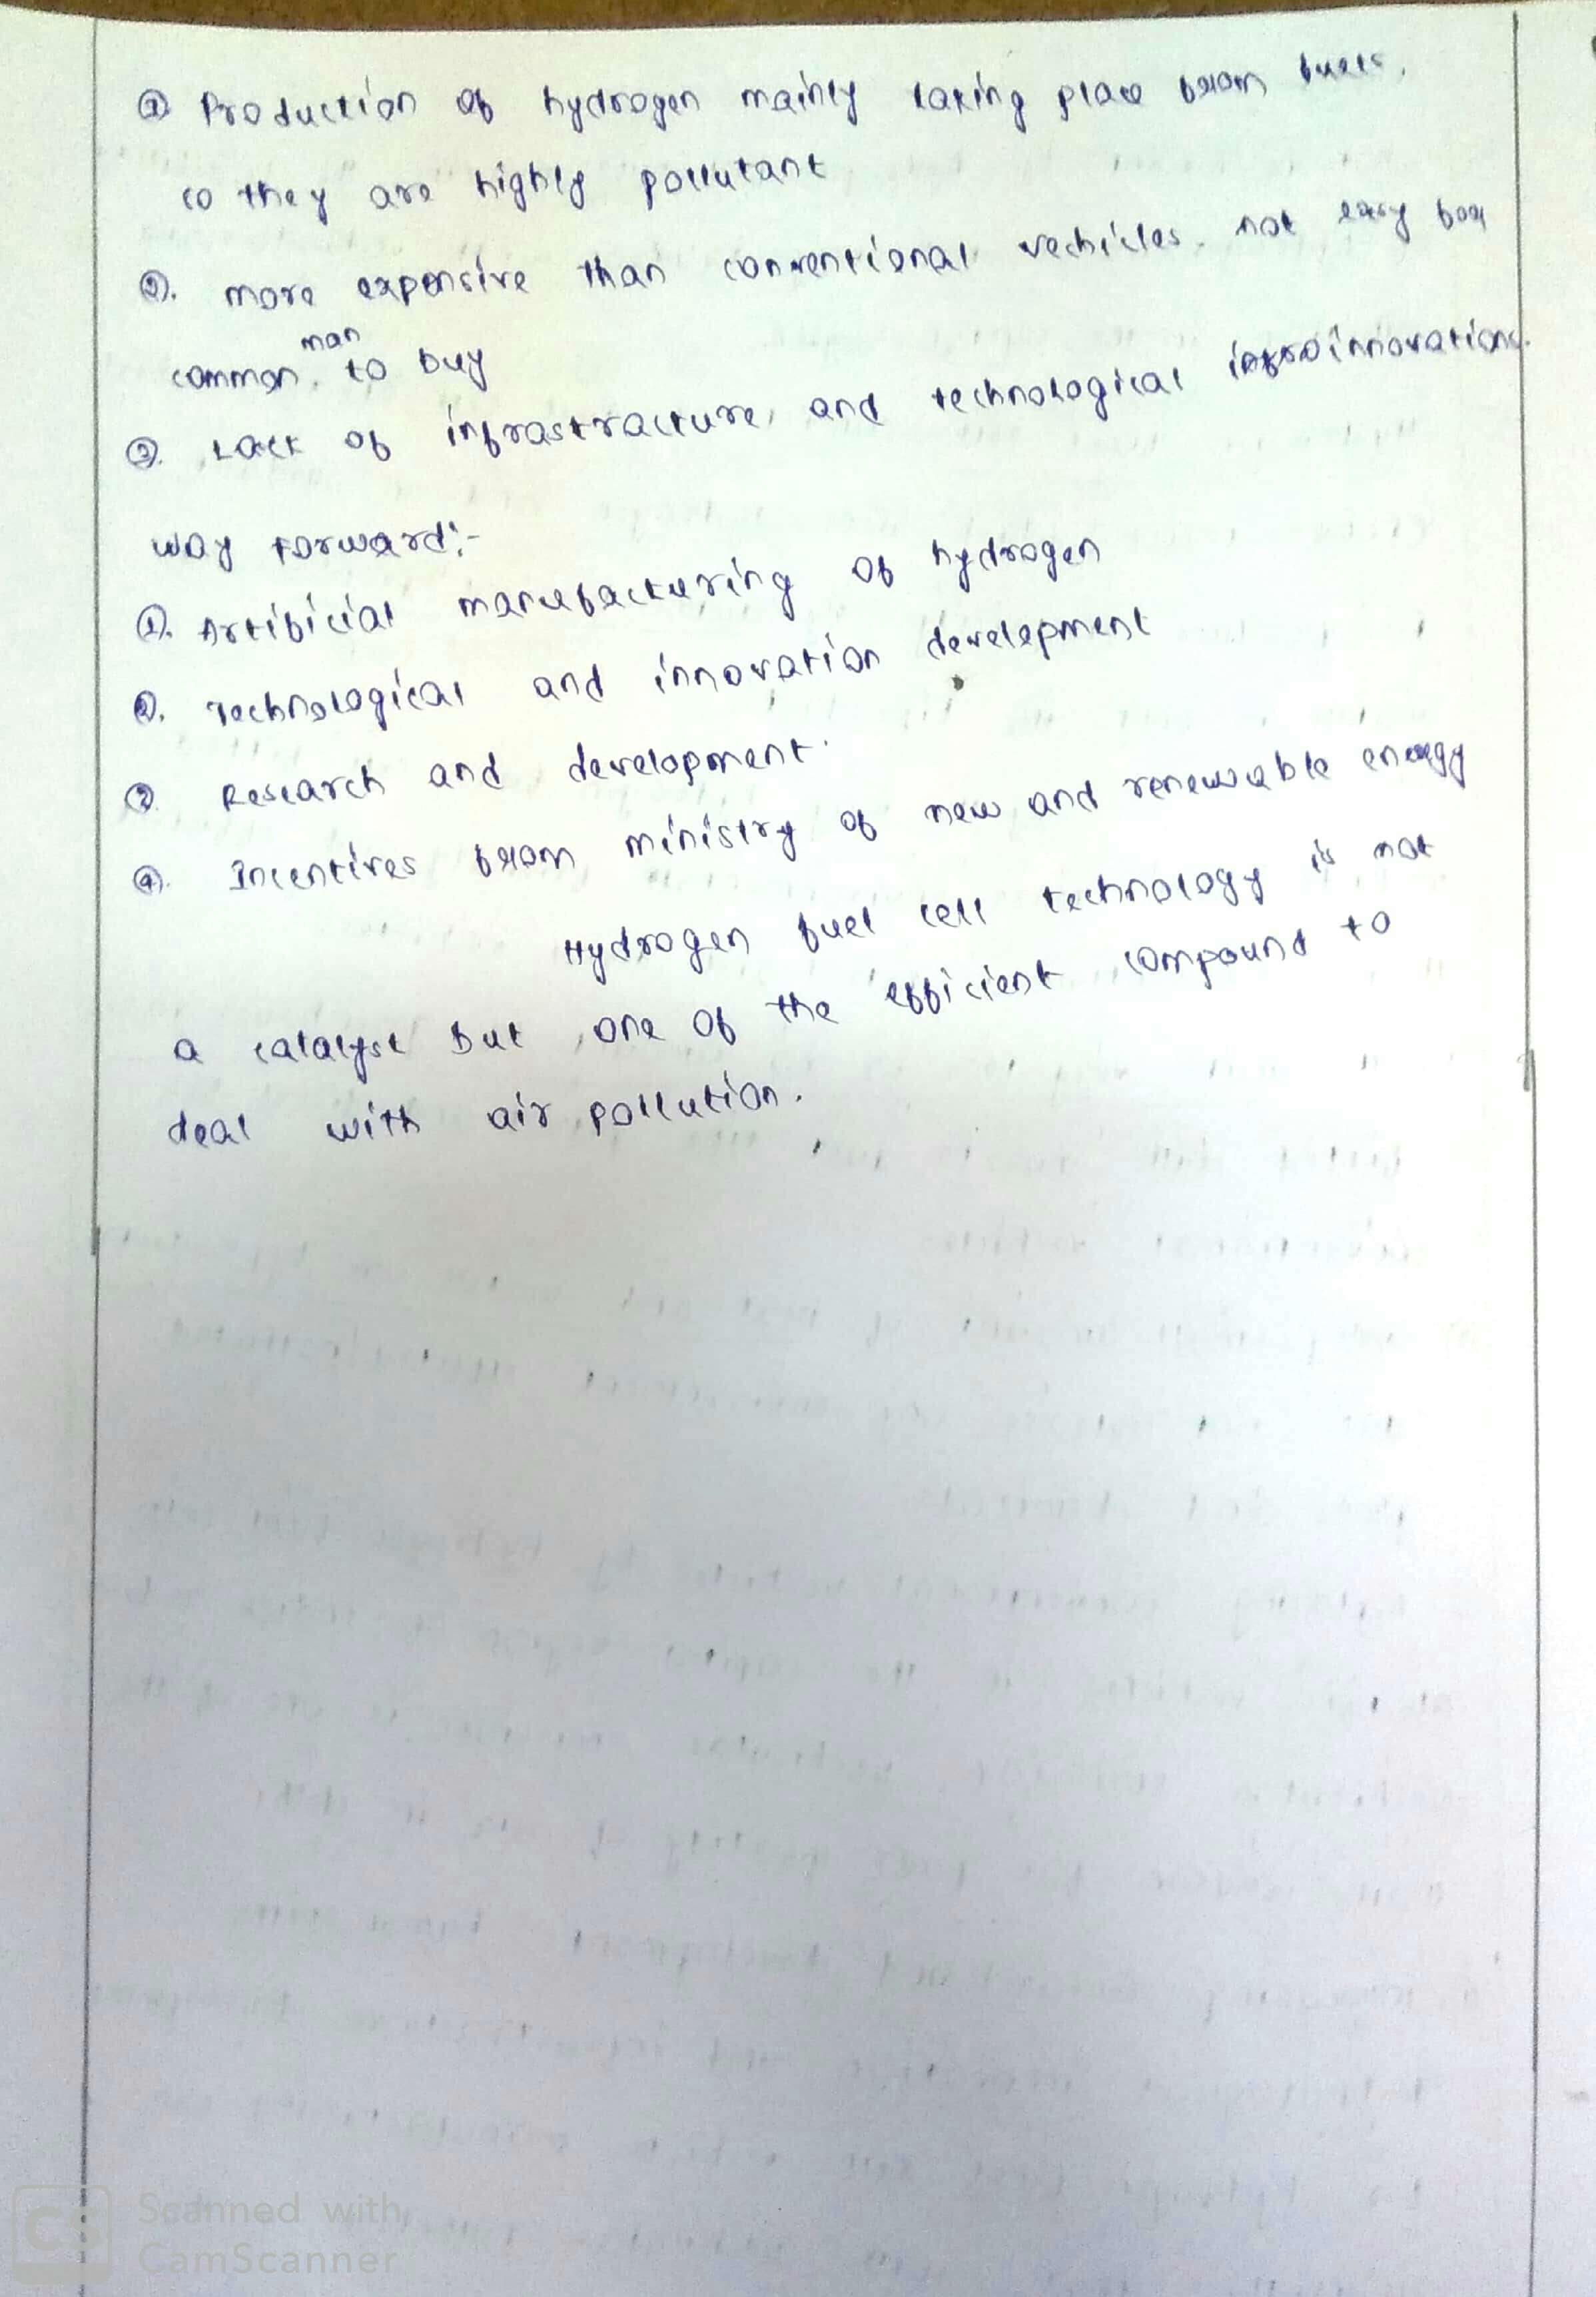 ① Production of hydrogen mainly taking place from fuels,
so they are highly pollutant
②. more expensive than conventional vechicles. not easy for
common man to buy
③. Lack of infrastracture, and technological innovations.
way forward:-
①. Artificial manufacturing of hydrogen
②. Technological and innovation development
③. Research and development.
④. Incentives from ministry of new and renewable energy
Hydrogen fuel cell technology is not
a catalyst but one of the efficient compound to
deal with air pollution.
Scanned with
CamScanner